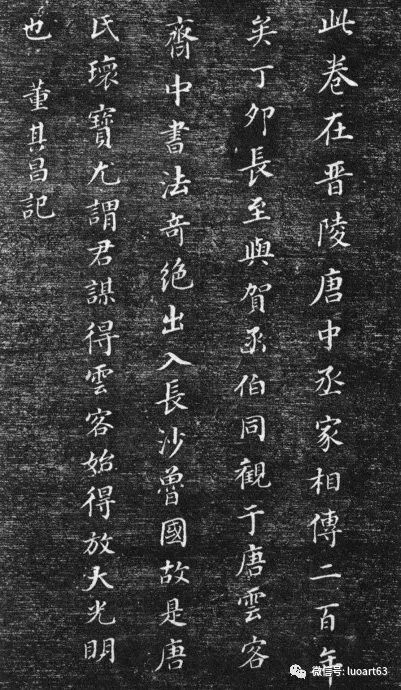 此卷在晉陵唐中丞家相傳二百年
矣丁卯長至與賀函伯同觀于唐雲客
齋中書法奇絶出入長沙魯國故是唐
氏瓌寶尤謂君謀得雲客始得放大光明
也 董其昌記
微信号: luoart63